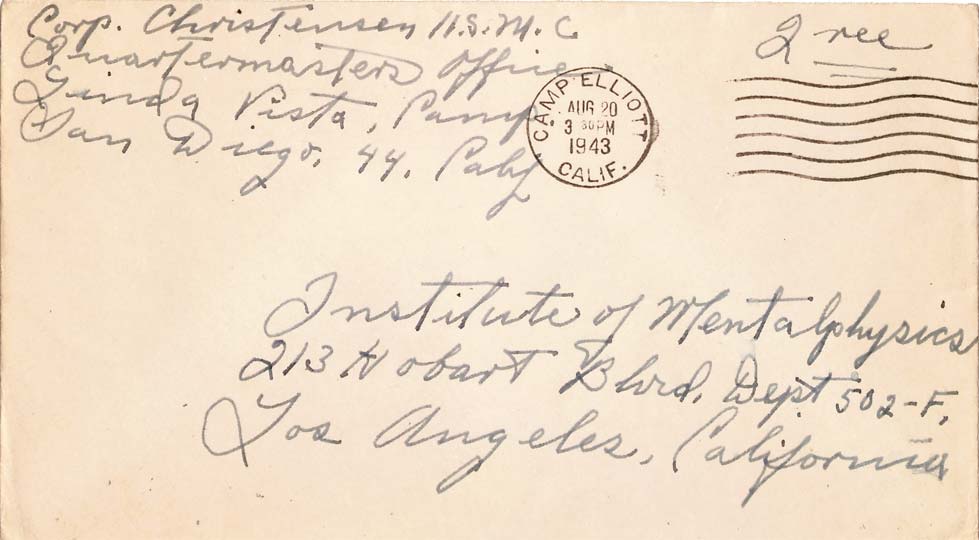 Corp. Christensen U.S.M.C
Quartermasters Office
Linda Vista, Camp
San Diego, 44, Calif
Free
CAMP ELLIOTT
AUG 20
3 30 PM
1943
CALIF.
Institute of Mentalphysics
213 Hobart Blvd, Dept 502-F,
Los Angeles, California